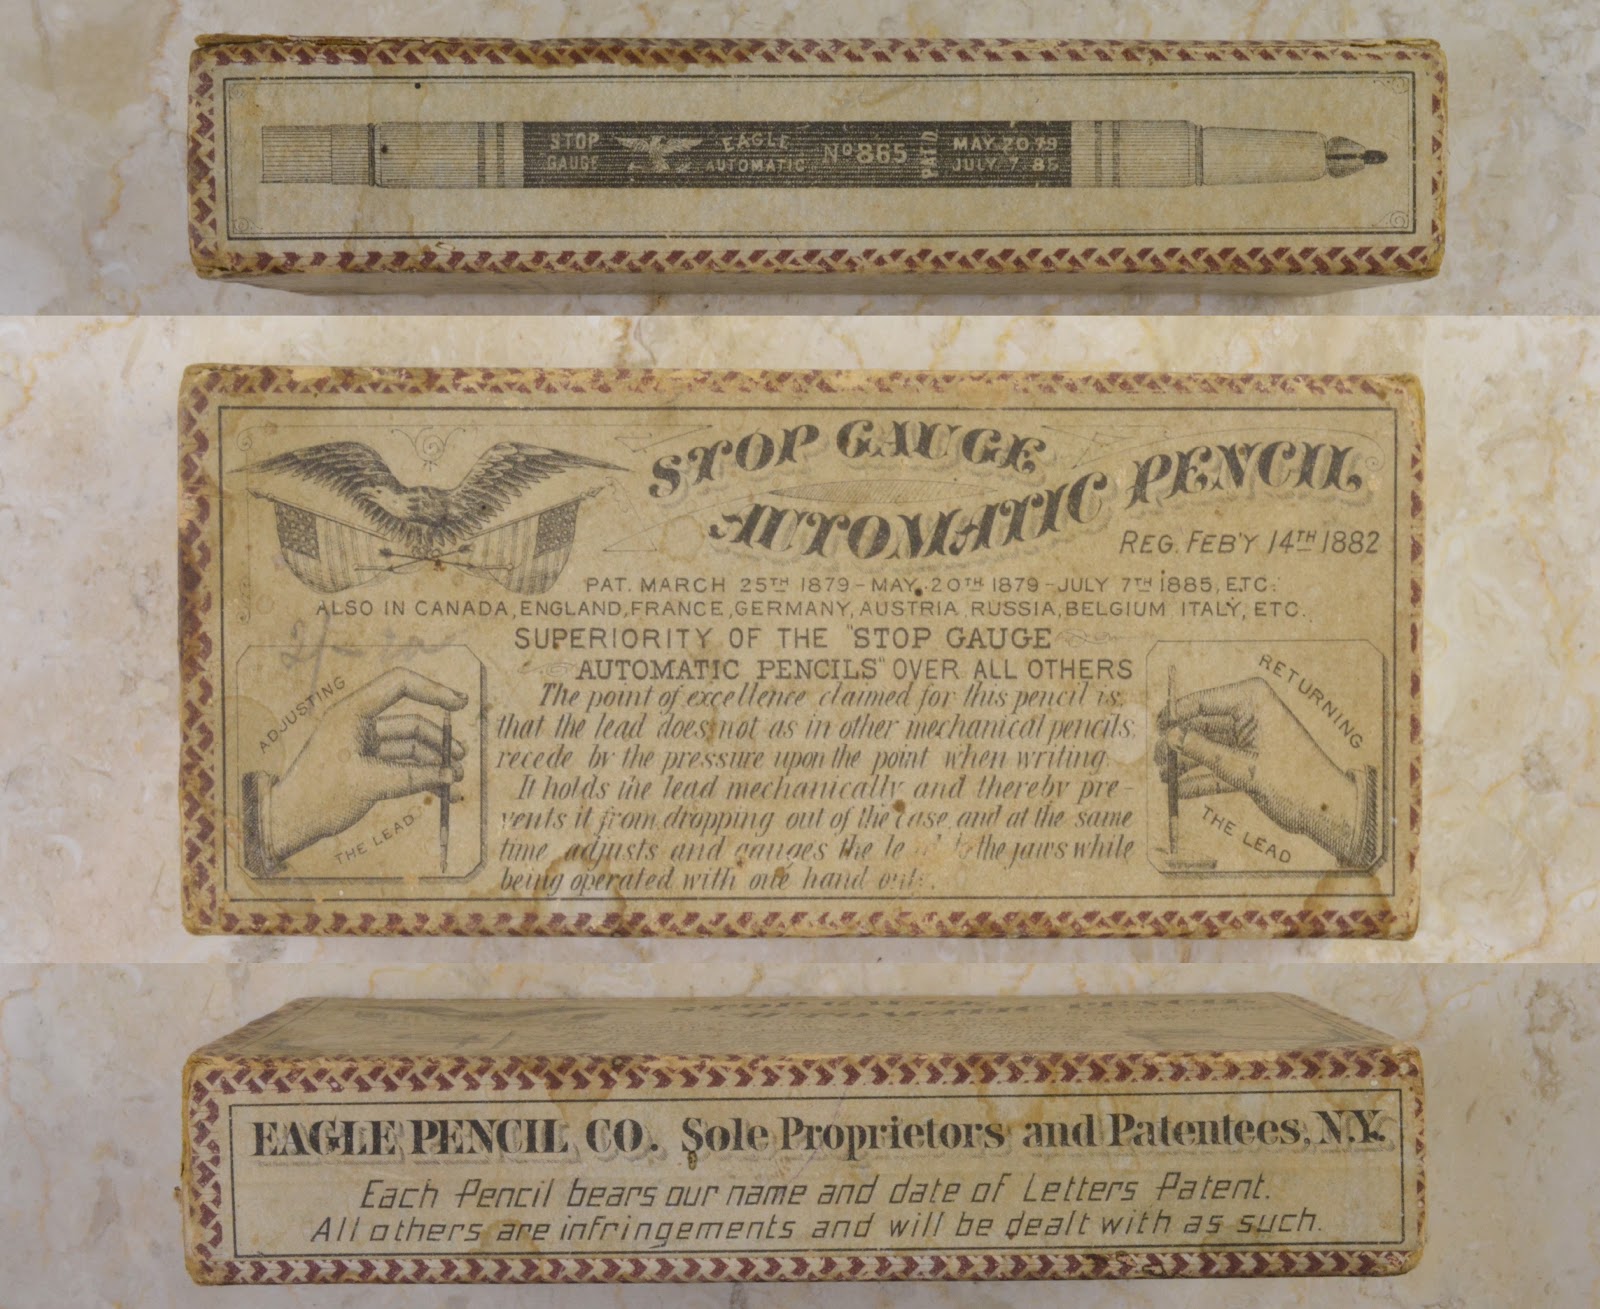 STOP GAUGE
EAGLE AUTOMATIC
No 865
PAT'D
MAY. 20. 79
JULY. 7. 85
STOP GAUGE
AUTOMATIC PENCIL
REG. FEB'Y 14TH 1882
PAT. MARCH 25TH 1879 - MAY. 20TH 1879 - JULY 7TH 1885, ETC.
ALSO IN CANADA, ENGLAND, FRANCE, GERMANY, AUSTRIA, RUSSIA, BELGIUM ITALY, ETC.
SUPERIORITY OF THE "STOP GAUGE
AUTOMATIC PENCILS" OVER ALL OTHERS
The point of excellence claimed for this pencil is,
that the lead does not as in other mechanical pencils,
recede by the pressure upon the point when writing.
It holds the lead mechanically and thereby pre-
vents it from dropping out of the case and at the same
time adjusts and gauges the the jaws while
being operated with one hand only.
ADJUSTING
THE LEAD
RETURNING
THE LEAD
EAGLE PENCIL CO. Sole Proprietors and Patentees, N.Y.
Each Pencil bears our name and date of Letters Patent.
All others are infringements and will be dealt with as such.